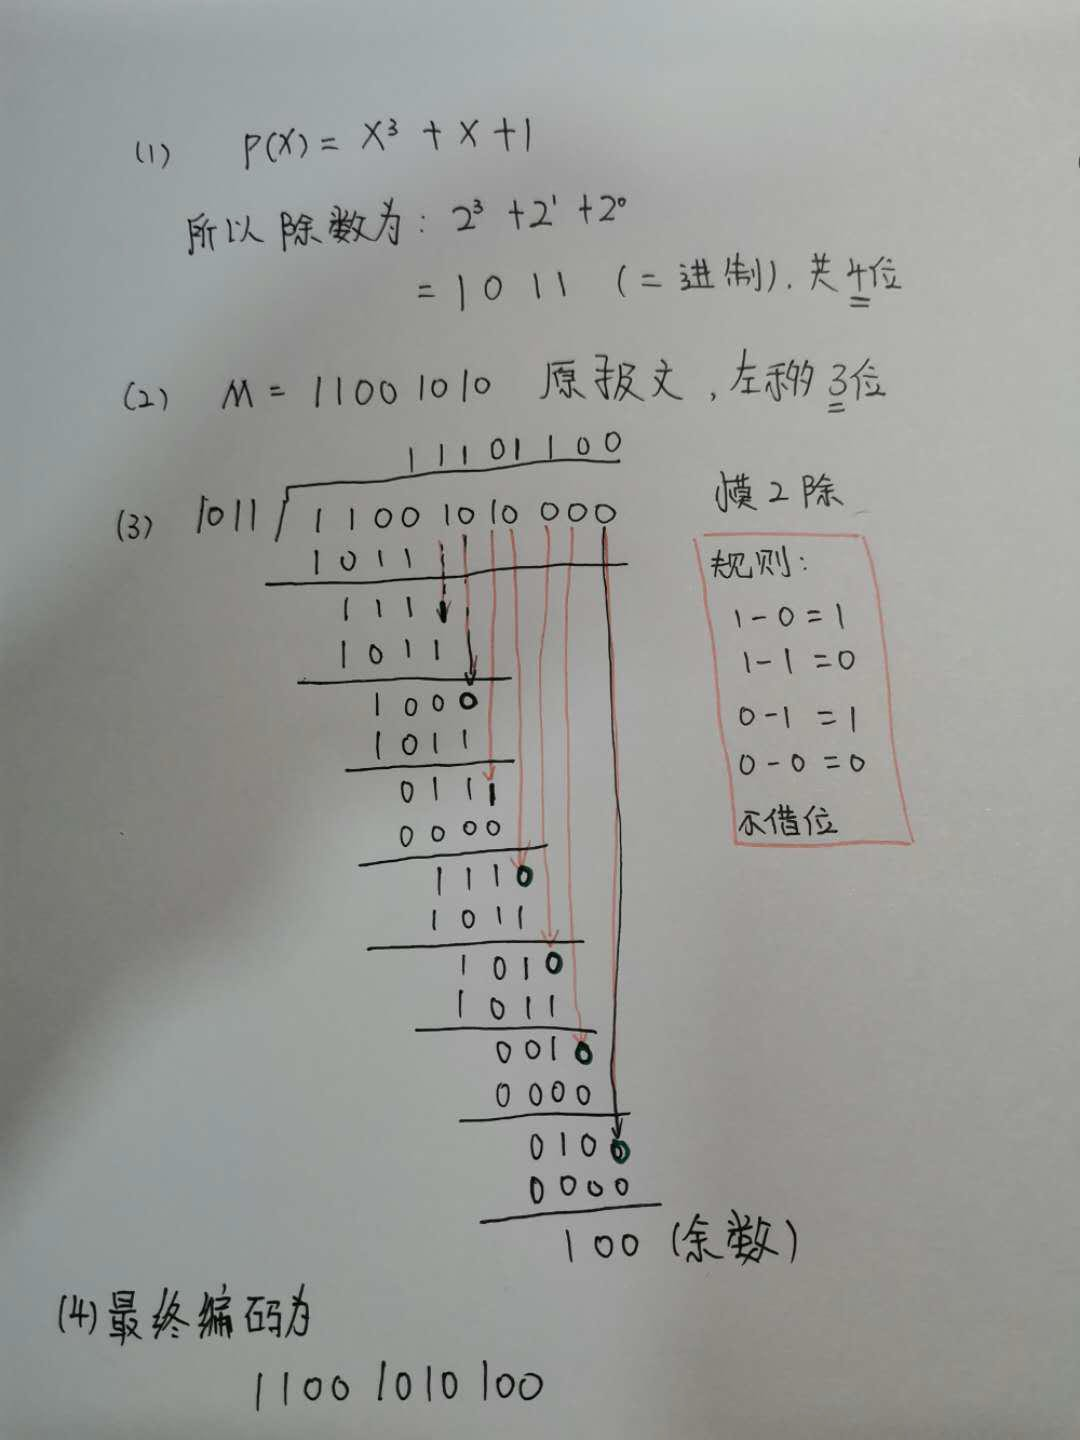 (1) P(X) = X³ + X + 1
所以 除数为: 2³ + 2¹ + 2⁰
= 1 0 1 1 (二进制). 共4位
(2) M = 1100 1010 原报文, 左移 3位
1 1 1 0 1 1 0 0
(3) 1011 1 1 0 0 1 0 1 0 0 0 0
1 0 1 1
1 1 1
1 0 1 1
1 0 0 0
1 0 1 1
0 1 1 1
0 0 0 0
1 1 1 0
1 0 1 1
1 0 1 0
1 0 1 1
0 0 1 0
0 0 0 0
0 1 0 0
0 0 0 0
1 0 0 (余数)
模 2 除
规则:
1 - 0 = 1
1 - 1 = 0
0 - 1 = 1
0 - 0 = 0
不借位
(4) 最终编码为
1100 1010 100